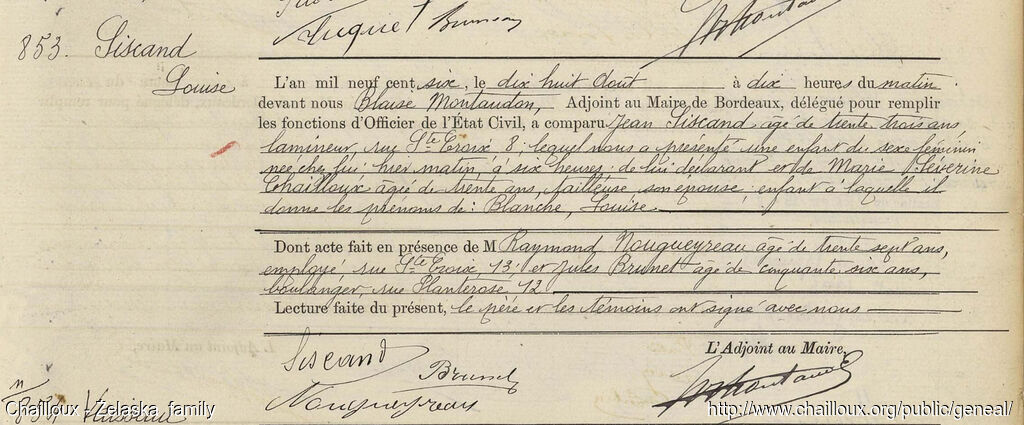 853. Siscand
Louise
L'an mil neuf cent six, le dix huit Aout à dix heures du matin
devant nous Blaise Montaudon, Adjoint au Maire de Bordeaux, délégué pour remplir
les fonctions d'Officier de l'État Civil, a comparu Jean Siscand âgé de trente trois ans,
lamineur, rue Ste Croix 8; lequel nous a présenté une enfant du sexe féminin
née chez lui; hier matin, à six heures, de lui déclarant et de Marie Séverine
Chailloux âgée de trente ans, tailleuse, son épouse; enfant à laquelle il
donne les prénoms de: Blanche, Louise.
Dont acte fait en présence de M Raymond Nougueyreau âgé de trente sept ans,
employé, rue Ste Croix, 13; et Jules Brunet âgé de cinquante six ans,
boulanger, rue Planterose 12
Lecture faite du présent, le père et les témoins ont signé avec nous
L'Adjoint au Maire,
Siscand Brunet
Nougueyreau
Chailloux / Zelaska family
http://www.chailloux.org/public/geneal/